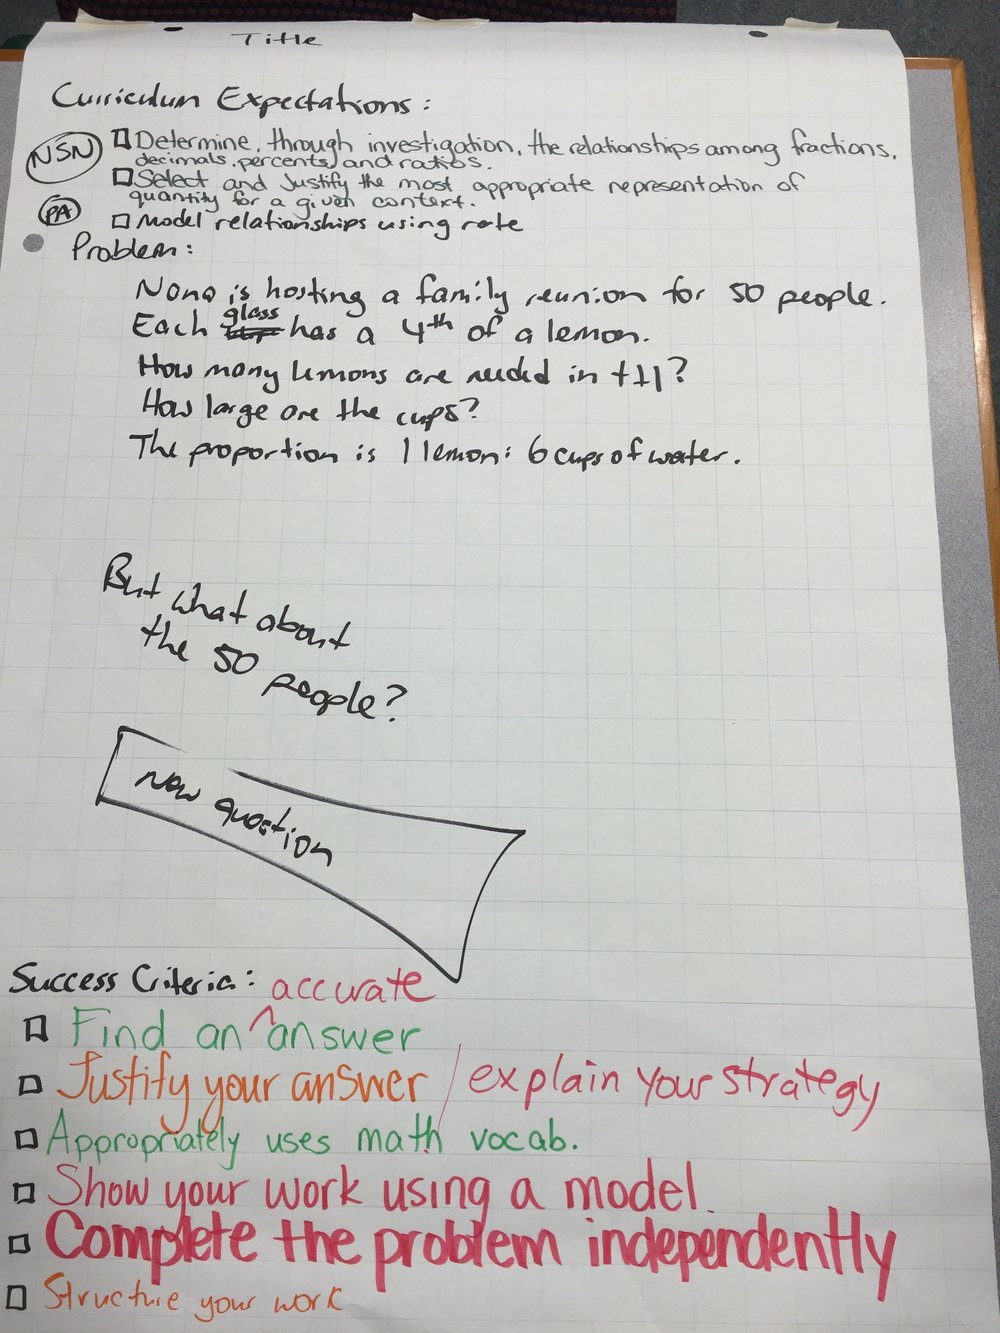 Title
Curriculum Expectations:
NSN
Determine, through investigation, the relationships among fractions,
decimals, percents, and ratios.
Select and Justify the most appropriate representation of
quantity for a given context.
PA
Model relationships using rate
Problem:
Nona is hosting a family reunion for 50 people.
Each glass has a 4th of a lemon.
How many lemons are needed in ttl?
How large are the cups?
The proportion is 1 lemon: 6 cups of water.
But what about
the 50 people?
New question
Success Criteria: accurate
Find an ^ answer
Justify your answer / explain your strategy
Appropriately uses math vocab.
Show your work using a model.
Complete the problem independently
Structure your work